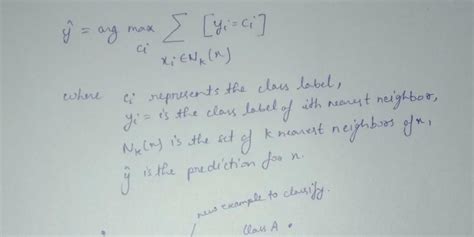 ŷ = arg max Σ [yᵢ = cᵢ]
cᵢ xᵢ ∈ Nₖ(x)
where cᵢ represents the class label,
yᵢ = is the class label of ith nearest neighbor,
Nₖ(x) is the set of k nearest neighbors of x,
ŷ is the prediction for x.
new example to classify.
Class A